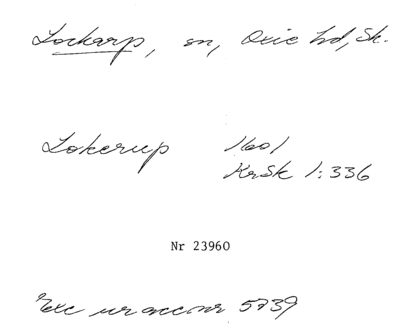 Lockarp, sn, Oxie hd, Sk.
Lokerup 1601
KrSk 1:336
Nr 23960
Exc ur acc nr 5739